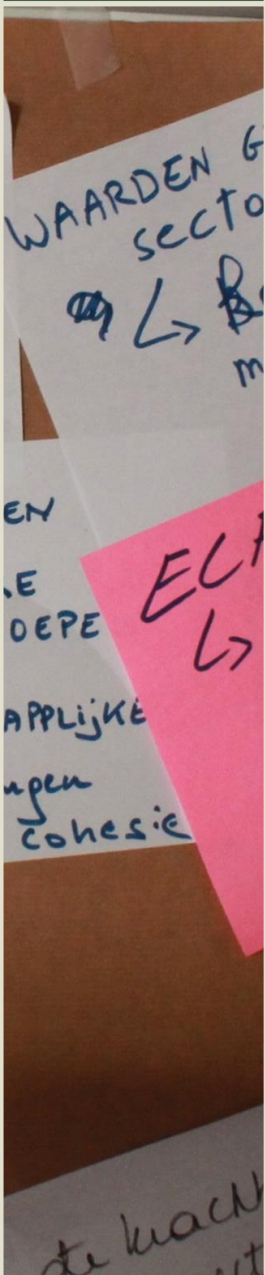 WAARDEN G
secto
↳
m
EN
E
OEPE
APPLIJKE
ngen
cohesie
EC
↳
de kracht